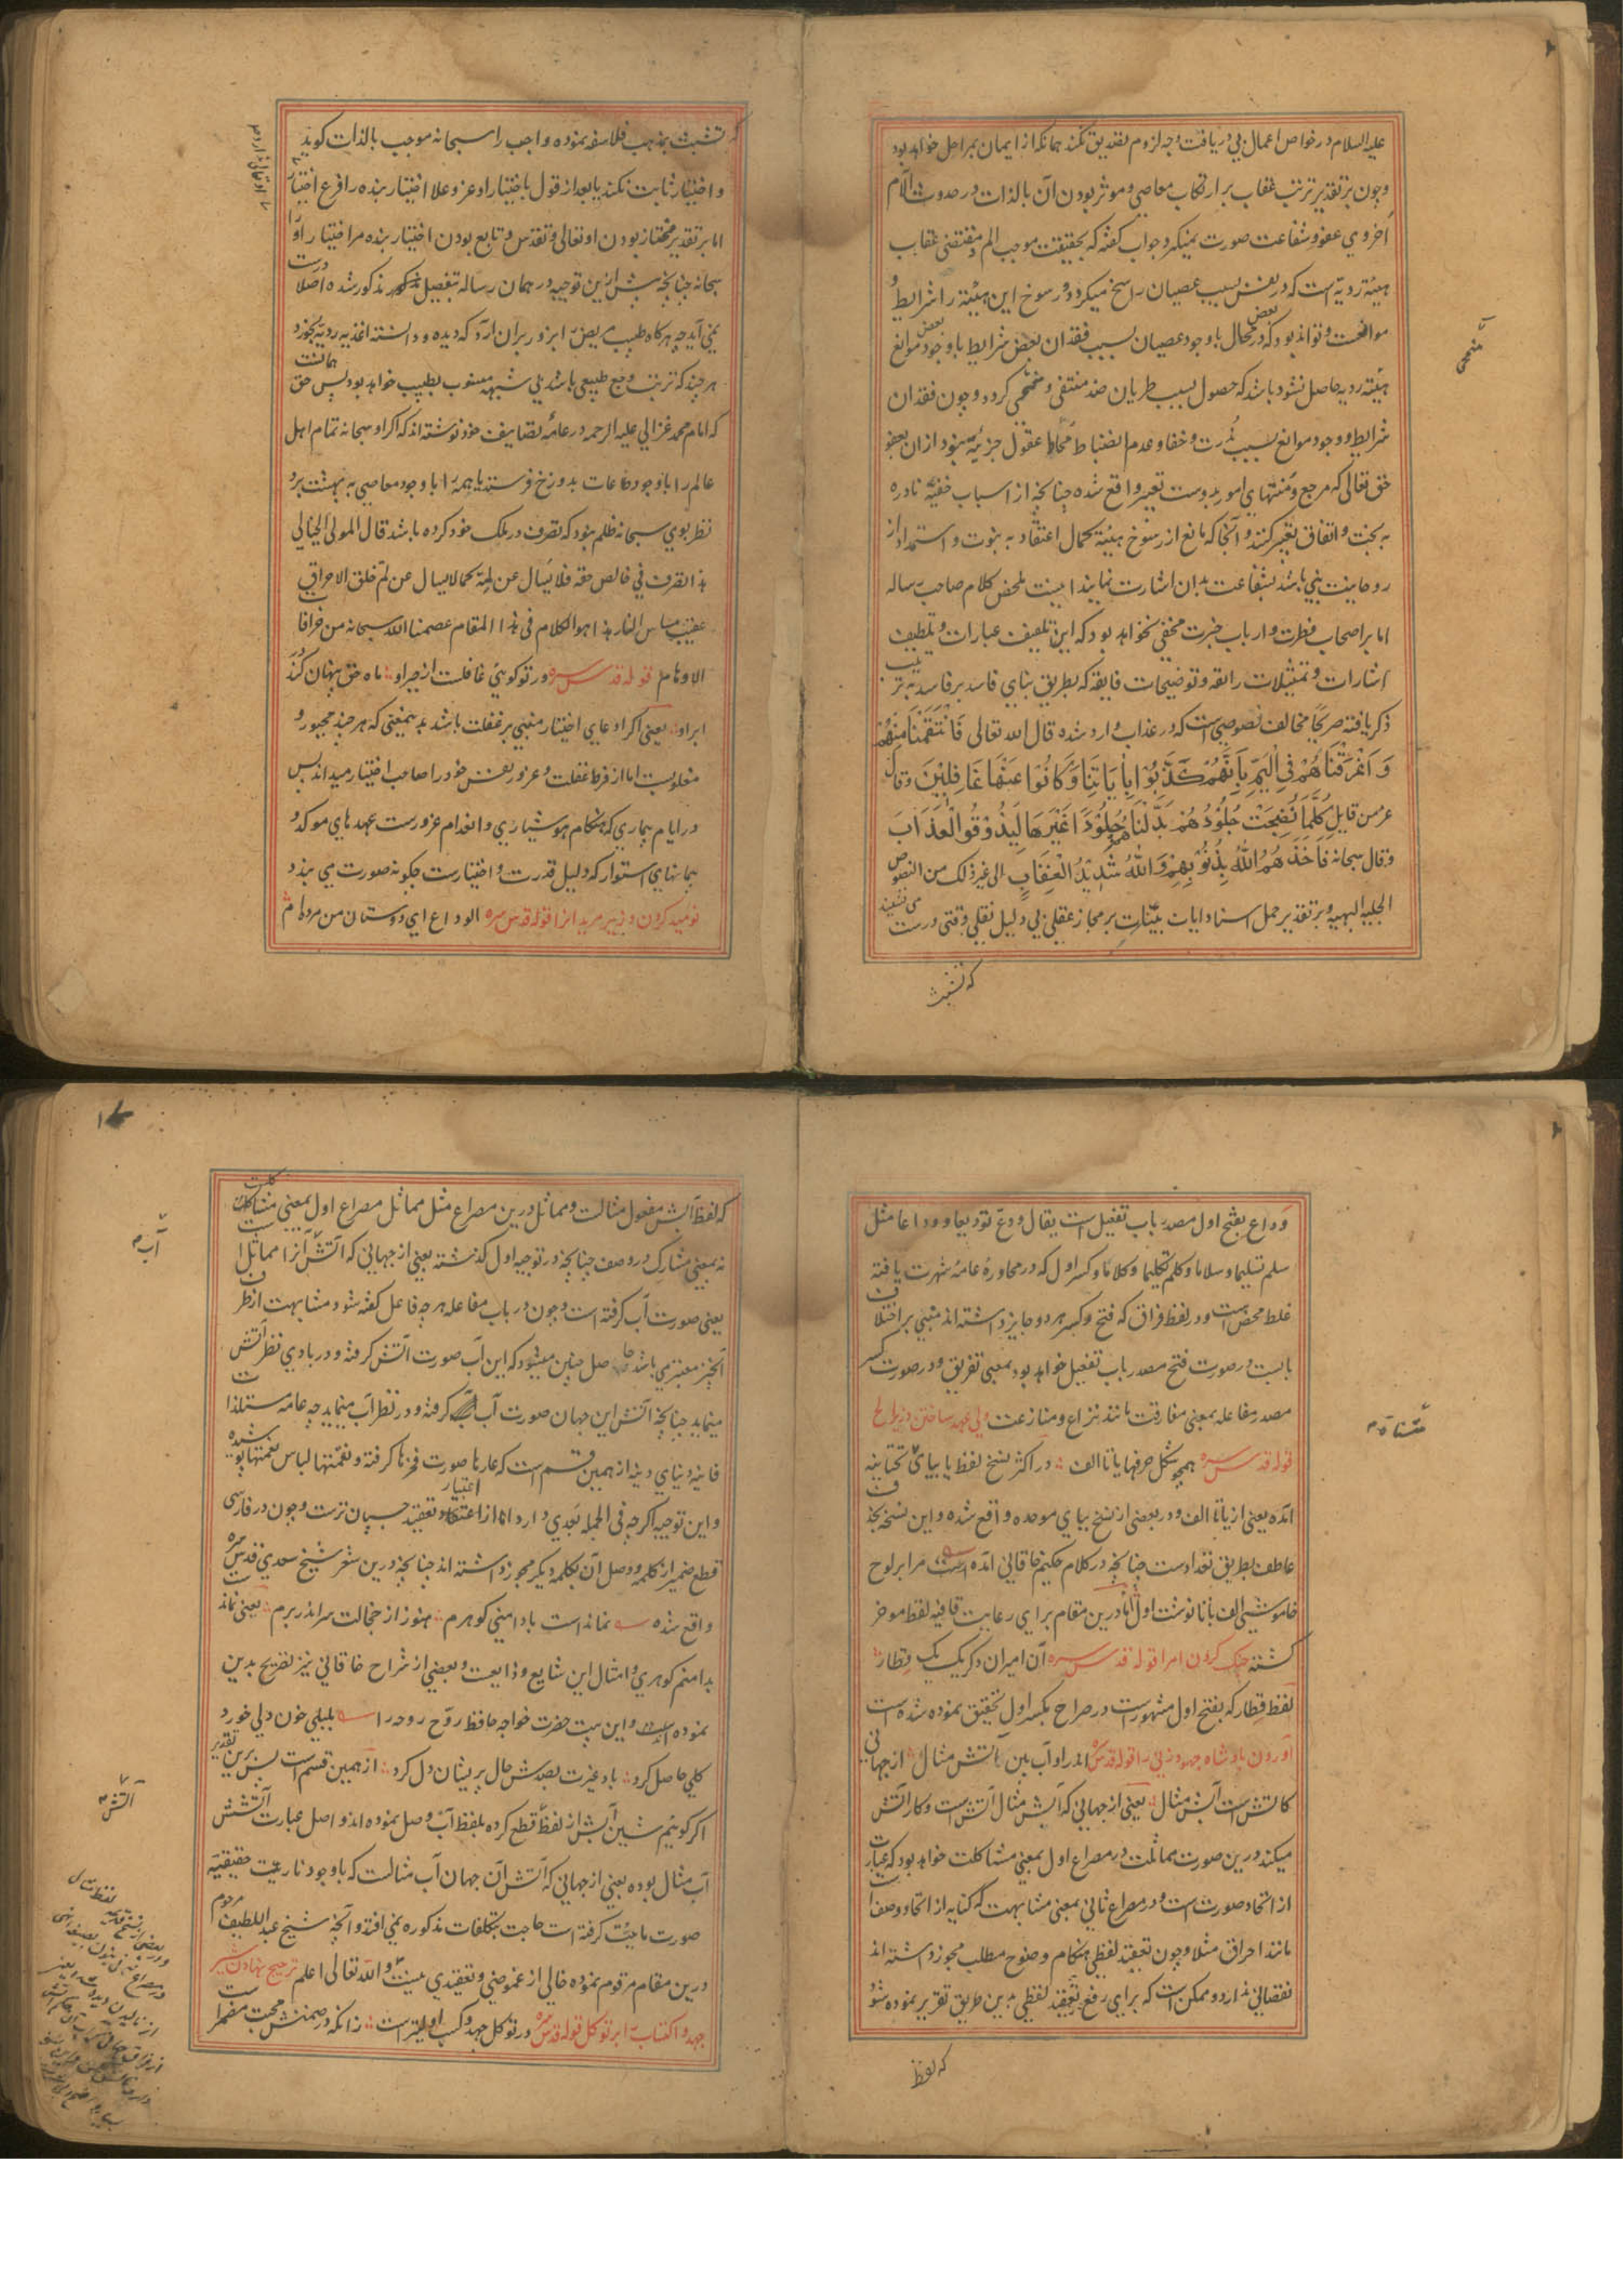 علیه السلام در خواص اعمال بی دریافت وجه لزوم تصدیق نکند همانکه از ایمان بمراحل خواهد بود
وچون بر تقدیر ترتب عقاب بر ارتکاب معاصی و موثر بودن آن بالذات در حدوث آلام
اخروی عفو و شفاعت صورت نمیگیرد جواب گفته که بحقیقت موجب الم و مقتضی عقاب
هیئة ردیة است که در نفس بسبب عصیان راسخ میگردد و رسوخ این هیئة را شرایط و
موانعست و تواند بود که در بعض محال باوجود عصیان بسبب فقدان بعض شرایط یا وجود بعض موانع
هیئة ردیه حاصل نشود یا شد که حصول بسبب طریان ضد منتفی و منمحی گردد وچون فقدان
شرایط و وجود موانع بسبب ندرت و خفا و عدم انضباط محاط عقول جزئیه نبود ازان بعفو
حق تعالی که مرجع و منتهای امور بدوست تعبیر واقع شده چنانچه از اسباب خفیه نادره
به بخت و اتفاق تعبیر کنند و آنجا که مانع از رسوخ هیئة کمال اعتقاد به نبوت و استمداد از
روحانیت نبی باشد بشفاعت بدان اشارت نمایند اینست ملخص کلام صاحب رساله
اما بر اصحاب فطرت و ارباب خبرت مخفی نخواهد بود که این تلفیف عبارات و تلطیف
اشارات و تمثیلات رایقه و توضیحات فایقه که بطریق بنای فاسد بر فاسد به ترتیب
ذکر یافته صریحا مخالف نصوصی است که در عذاب وارد شده قال الله تعالی فَانْتَقَمْنَا مِنْهُمْ
وَاَغْرَقْنَاهُمْ فِی الْیَمِّ بِاَنَّهُمْ کَذَّبُوْا بِاٰیَاتِنَا وَکَانُوْا عَنْهَا غَافِلِیْنَ وقال
عز من قایل کُلَّمَا نَضِجَتْ جُلُوْدُهُمْ بَدَّلْنَاهُمْ جُلُوْدًا غَیْرَهَا لِیَذُوْقُوا الْعَذَابَ
وقال سبحانه فَاَخَذَهُمُ اللّٰهُ بِذُنُوْبِهِمْ وَاللّٰهُ شَدِیْدُ الْعِقَابِ الی غیر ذلک من النصوص
الجلیه البهیه و بر تقدیر حمل اسناد ایات بینات بر مجاز عقلی بی دلیل نقلی وقتی درست می نشیند
که تشبث
منمحی
که تشبث بمذهب فلاسفه نموده واجب را سبحانه موجب بالذات گوید
و اختیار ثابت نکند یا بعد از قول باختیار او عز و علا اختیار بنده را فرع اختیار
اما بر تقدیر مختار بودن او تعالی و تقدس و تابع بودن اختیار بنده مر اختیار او را
سبحانه چنانچه پیش ازین توجیه در همان رساله بتفصیل مذکور شده اصلا درست
نمی آید چه هرگاه طبیب مریض را بزور بران آرد که دیده و دانسته اغذیه ردیه بخورد
هر چند که ترتب وجع طبیعی باشد بی شبهه منسوب بطبیب خواهد بود پس حق همانست
که امام محمد غزالی علیه الرحمه در عامه تصانیف خود نوشته اند که اگر او سبحانه تمام اهل
عالم را باوجود طاعات بدوزخ فرستد یا همه را باوجود معاصی به بهشت برد
نظر بوی سبحانه ظلم نبود که تصرف در ملک خود کرده باشد قال المولی الخیالی
هذا تصرف فی خالص حقه فلا یسال عن لمیته کما لا یسال عن لم خلق الاحراق
عقیب مساس النار هذا هو الکلام فی هذا المقام عصمنا الله سبحانه من خرافات
الاوهام قوله قدس سره ور تو گویی غافلست از جبر او ماه حق پنهان کند
ابر او یعنی اگر ادعای اختیار مبنی بر غفلت باشد بدینمعنی که هر چند مجبور و
مغلوبست اما از فرط غفلت و غرور نفس خود را صاحب اختیار میداند پس
در ایام بیماری که هنگام هوشیاری و انعدام غرورست عهدهای موکد و
پیمانهای استوار که دلیل قدرت و اختیارست چگونه صورت می بندد
نومید کردن وزیر مریدانرا قوله قدس سره الوداع ای دوستان من مرده ام
وَداع بفتح اول مصدر باب تفعیل است یقال ودع تودیعا و وداعا مثل
سلم تسلیما و سلاما و کلم تکلیما و کلاما و کسر اول که در محاورهٔ عامه شهرت یافته
غلط محض است و در لفظ فراق که فتح و کسر هر دو جایز داشته اند مبنی بر اختلاف
بابست در صورت فتح مصدر باب تفعیل خواهد بود بمعنی تفریق و در صورت کسر
مصدر مفاعله بمعنی مفارقت مانند نزاع و منازعت ولی عهد ساختن وزیر الخ
قوله قدس سره همچو شکل حرفها یا تا الف در اکثر نسخ لفظ یا بیای تحتانیه
امده یعنی از یا تا الف و در بعضی از نسخ ببای موحده واقع شده و این نسخه بحذف
عاطف بطریق تعدادست چنانچه در کلام حکیم خاقانی امده است مرا بر لوح
خاموشی الف با تا نوشت اول اما درین مقام برای رعایت قافیه لفظ موخر
گشته جنگ کردن امرا قوله قدس سره آن امیران دگر یک یک قطار
لفظ قطار که بفتح اول مشهورست در صراح بکسر اول تحقیق نموده شده است
آوردن پادشاه جهود زنی را قوله قدس سره اندر او آب بین آتش مثال از جهانی
کآتش است آبش مثال یعنی از جهانی که آبش مثال آتش است و کار آتش
میکند درین صورت مماثلت در مصراع اول بمعنی مشاکلت خواهد بود که عبارت
از اتحاد صورت است و در مصراع ثانی بمعنی مشابهت که کنایه از اتحاد وصف است
مانند احراق مثلا وچون تعقید لفظی هنگام وضوح مطلب مجوز داشته اند
نقصانی ندارد و ممکن است که برای رفع تعقید لفظی بدین طریق تقریر نموده شود
که لفظ
که لفظ آبش مفعول مثالست و مماثل درین مصراع مثل مماثل مصراع اول بمعنی مشاکلت
نه بمعنی مشارک در وصف چنانچه در توجیه اول گذشته یعنی از جهانی که آتش آنرا مماثل است
یعنی صورت آب گرفته است وچون در باب مفاعله هر چه فاعل گفته شود مشابهت از طرف
آنچیز معتبر می باشد حاصل چنین میشود که این آب صورت آتش گرفته و در بادی نظر آتش
مینماید چنانچه آتش این جهان صورت آب گرفته و در نظر آب مینماید چه عامه مستلذات
فانیه دنیای دنیه از همین قسم است که عارها صورت فخرها گرفته و نقمتها لباس نعمتها پوشیده
و این توجیه اگرچه فی الجمله بعدی دارد اما از اعتبار تعقید چسپان ترست وچون در فارسی
قطع ضمیر از کلمه و وصل آن بکلمه دیگر مجوز داشته اند چنانچه درین شعر شیخ سعدی قدس سره
واقع شده نمانداست با دامنی گوهرم هنوز از خجالت سر اندر برم یعنی نماندست
بدامنم گوهری و امثال این شایع و ذایعست و بعضی از شراح خاقانی نیز تصریح بدین
نموده اند و این بیت حضرت خواجه حافظ روّح روحه را بلبلی خون دلی خورد و
گلی حاصل کرد باد غیرت بصدش حال پریشان دل کرد از همین قسم است پس برین تقدیر
اگر گوییم شین آبش از لفظ قطع کرده بلفظ آب وصل نموده اند و اصل عبارت آتشش
آب مثال بوده یعنی از جهانی که آتش آن جهان آب مثالست که باوجود ناریت حقیقیه
صورت مائیت گرفته است حاجت بتکلفات مذکوره نمی افتد و آنچه شیخ عبداللطیف مرحوم
درین مقام مرقوم نموده خالی از غموضی و تعقیدی نیست و الله تعالی اعلم ترجیح نهادن شیر
جهد و اکتساب را بر توکل قوله قدس سره در توکل جهد و کسب اولیتر است زانکه در ضمنش محبت مضمر است
آتش